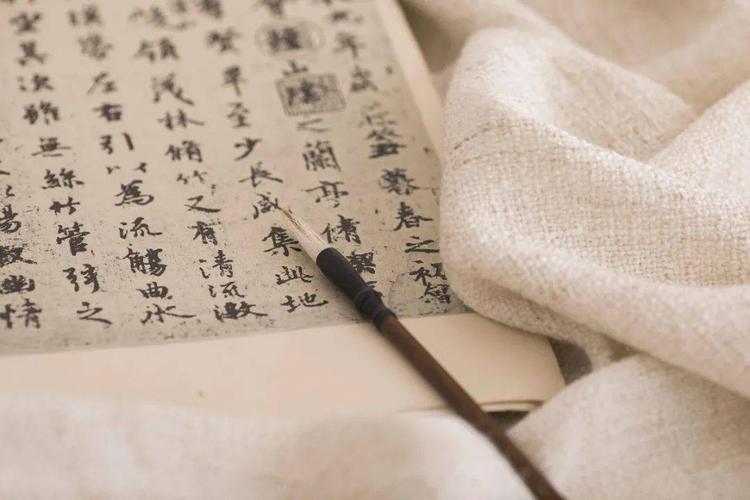 九年歲在癸丑暮春之初會
稽山陰之蘭亭脩稧
群賢畢至少長咸集此地
峻領茂林脩竹又有清流激
映帶左右引以為流觴曲水
坐其次雖無絲竹管弦之
暢敘幽情